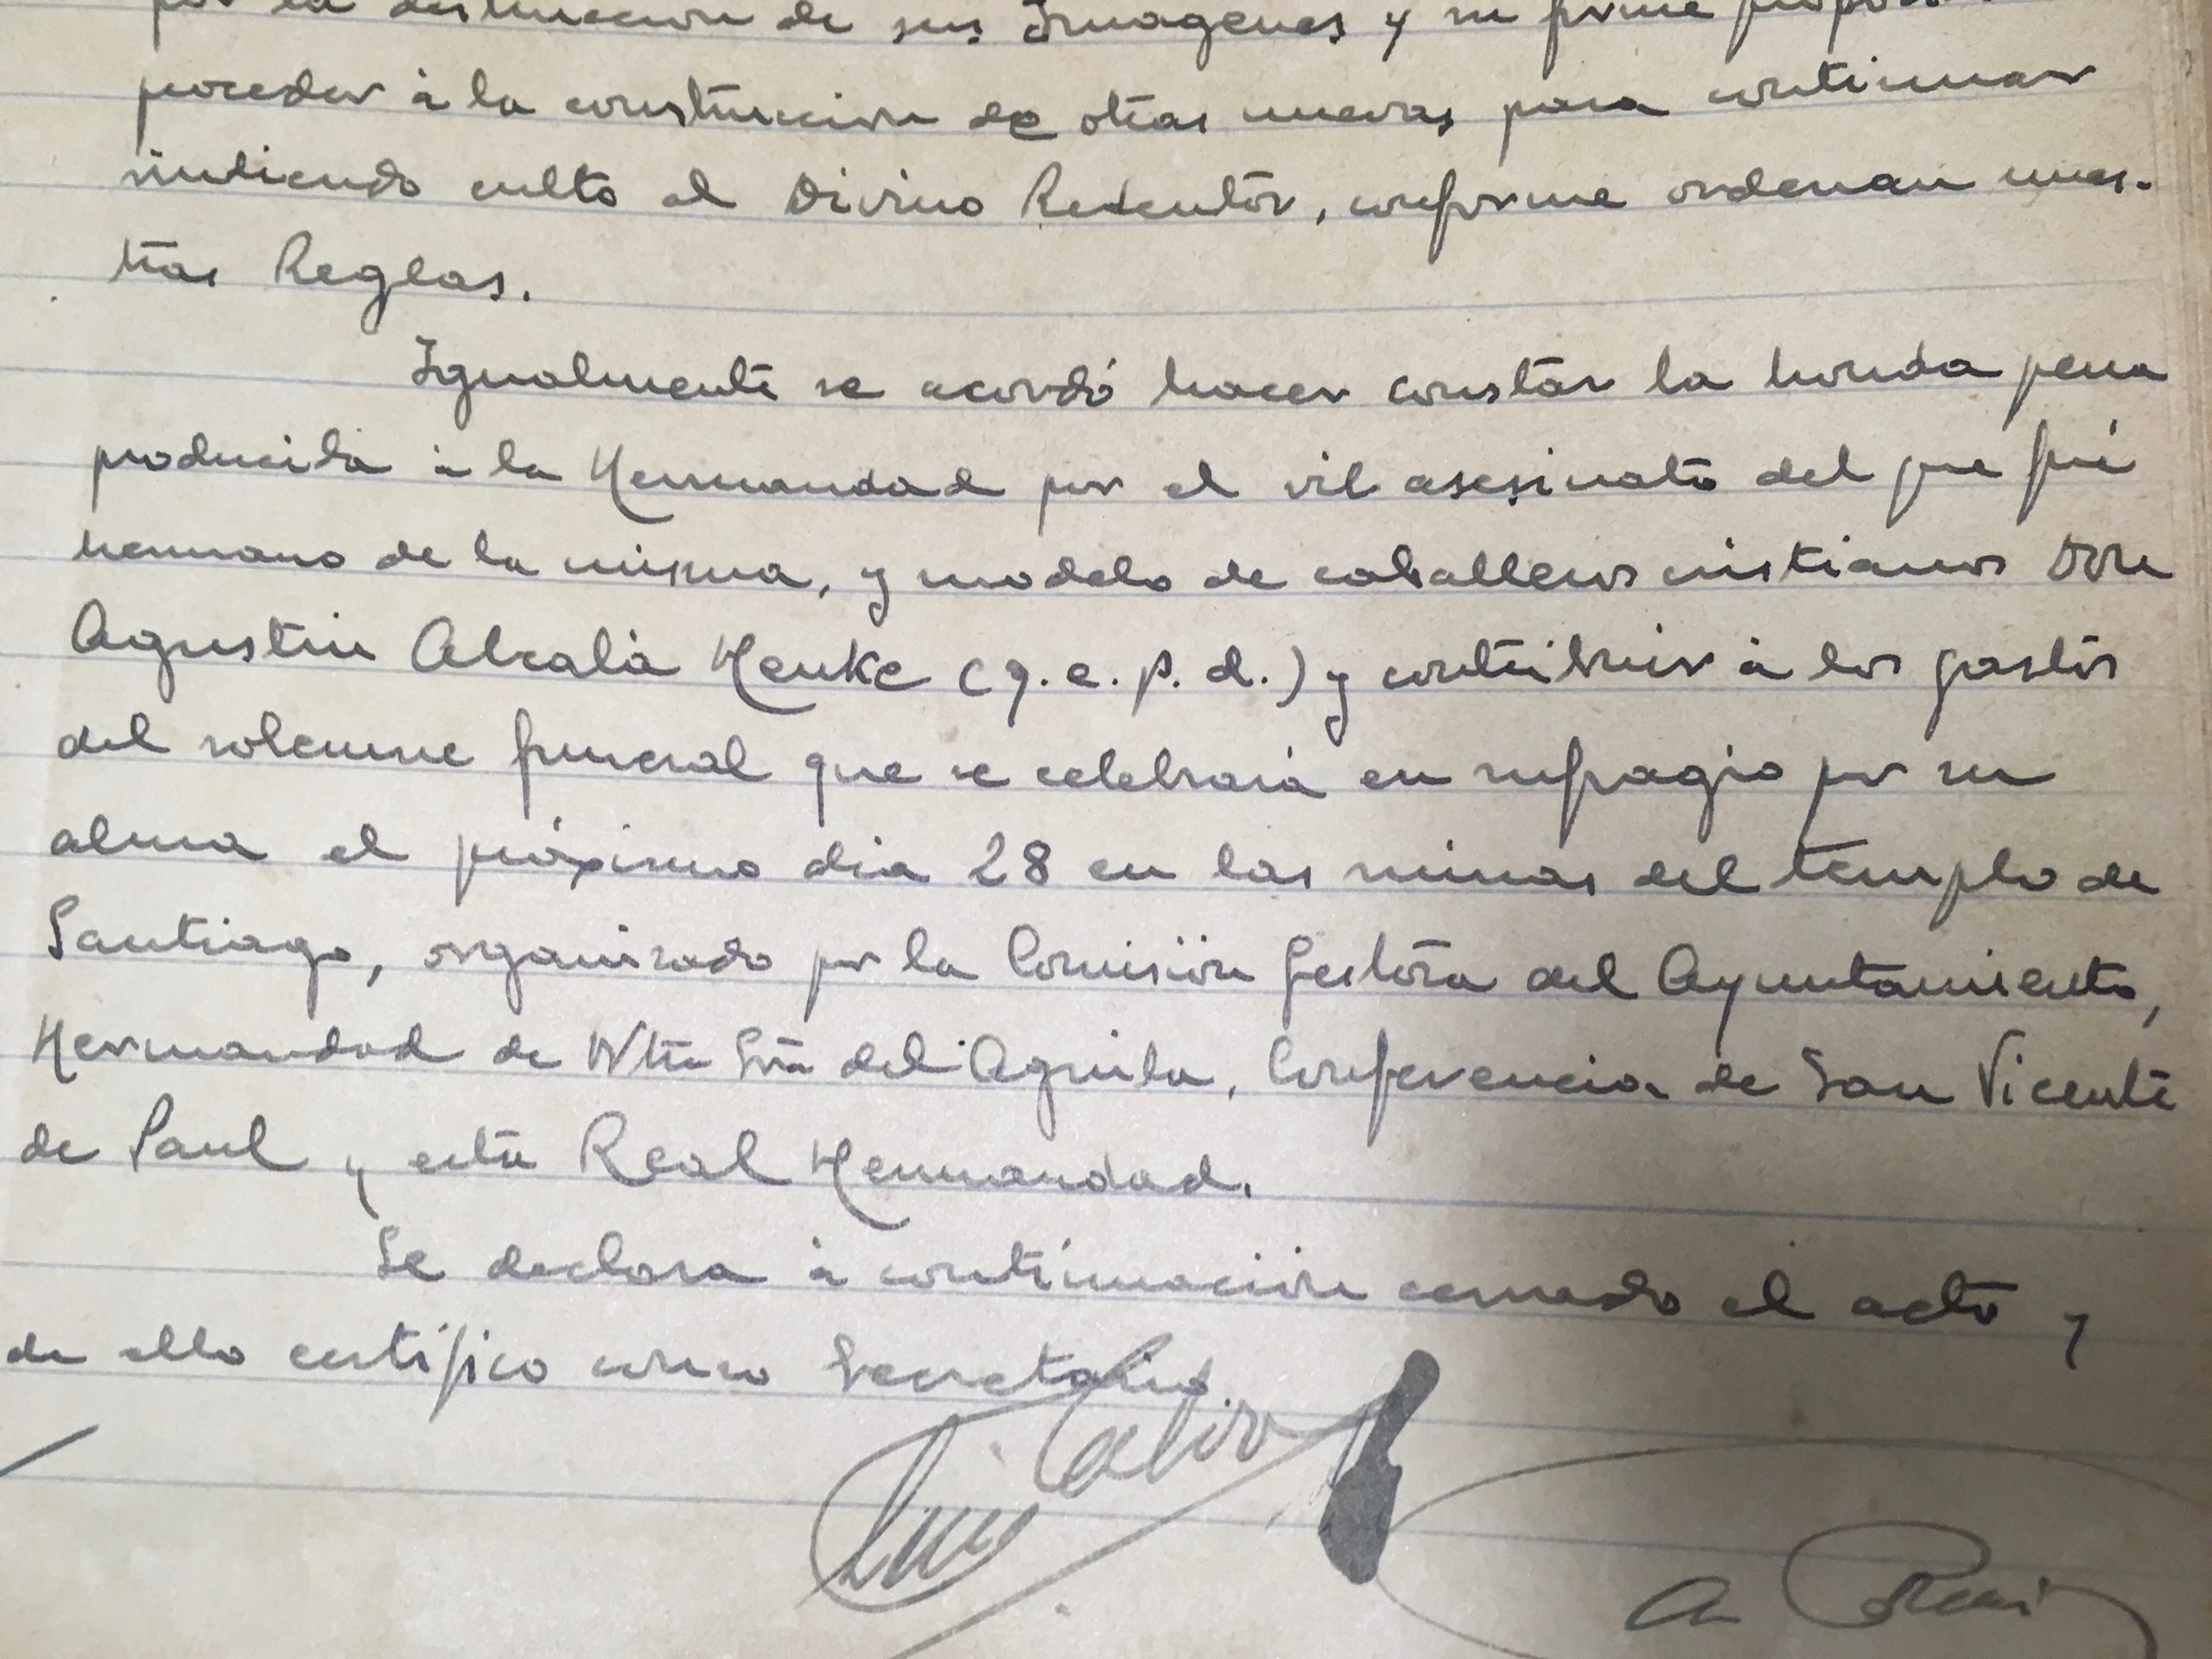 por la destrucción de sus Imágenes y su firme
proceder à la construcción de otras nuevas para continuar
rindiendo culto al Divino Redentor, conforme ordenan nues-
tras Reglas.
Igualmente se acordó hacer constar la honda pena
producida à la Hermandad por el vil asesinato del que fué
hermano de la misma, y modelo de caballeros cristianos Don
Agustín Alcalà Henke (q. e. p. d.) y contribuir à los gastos
del solemne funeral que se celebrará en sufragio por su
alma el próximo dia 28 en las ruinas del templo de
Santiago, organizado por la Comisión Gestora del Ayuntamiento,
Hermandad de Ntra Sra del Aguila, Conferencia de San Vicente
de Paul y esta Real Hermandad.
Se declara à continuación cerrado el acto y
de ello certifico como Secretario.
Luis
A